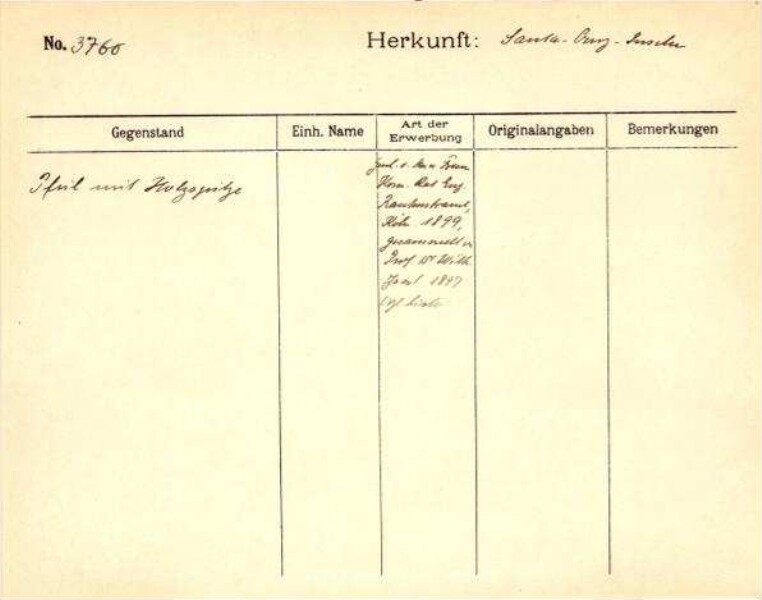 No. 3760
Herkunft: Santa-Cruz-Inseln
Gegenstand
Einh. Name
Art der Erwerbung
Originalangaben
Bemerkungen
Pfeil mit Holzspitze
Frau
Kom. Rat Eug.
Rautenstrauch,
Köln 1899,
gesammelt v.
Prof Dr Wilh.
Joest 1897